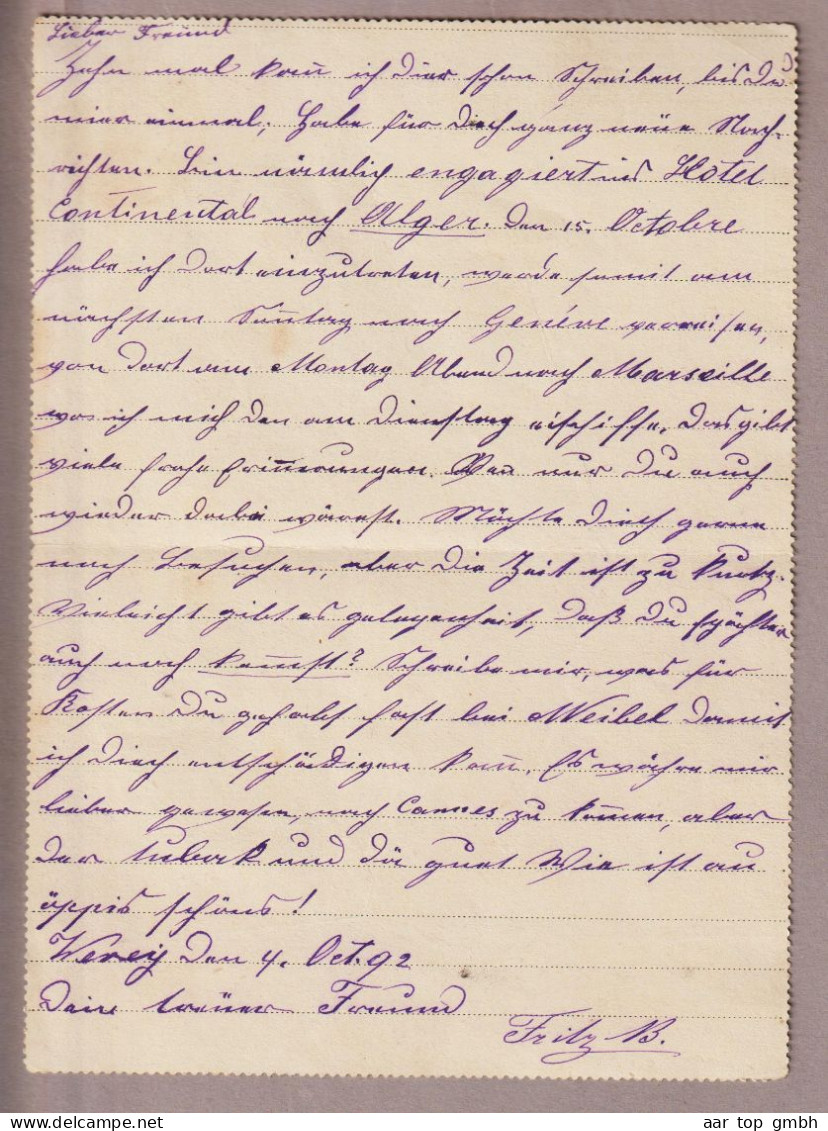 Lieber Freund
Zehn mal kan̄ ich dier schon Schreiben, bis Du
mier einmal, Habe für Dich ganz neue Nach-
richten. Bin nämlich engagiert ins Hotel
Continental nach Alger. Den 15. Octobre
habe ich dort einzutreten, werde somit am
nächsten Son̄tag nach Genéve verreisen,
von dort am Montag Abend nach Marseille
wo ich mich den am Dienstag eischiffe. Das gibt
viele frohe Erin̄erungen. Wen nur Du auch
wieder dabei wärest. Möchte Dich gerne
noch Besuchen, aber die Zeit ist zu kurtz.
Vieleicht gibt es gelegenheit, daß Du spähter
auch noch kom̄st? Schreibe mir, was für
Kosten Du gehabt hast bei Weibel damit
ich Dich entschädigen kan̄. Es währe mir
lieber gewesen, nach Cannes zu kom̄en, aber
der tubak und dä guet Wie ist au
äppis schöns!
Vevey den 4. Oct. 92
Dein treüer Freund
Fritz B.
aar top gmbh